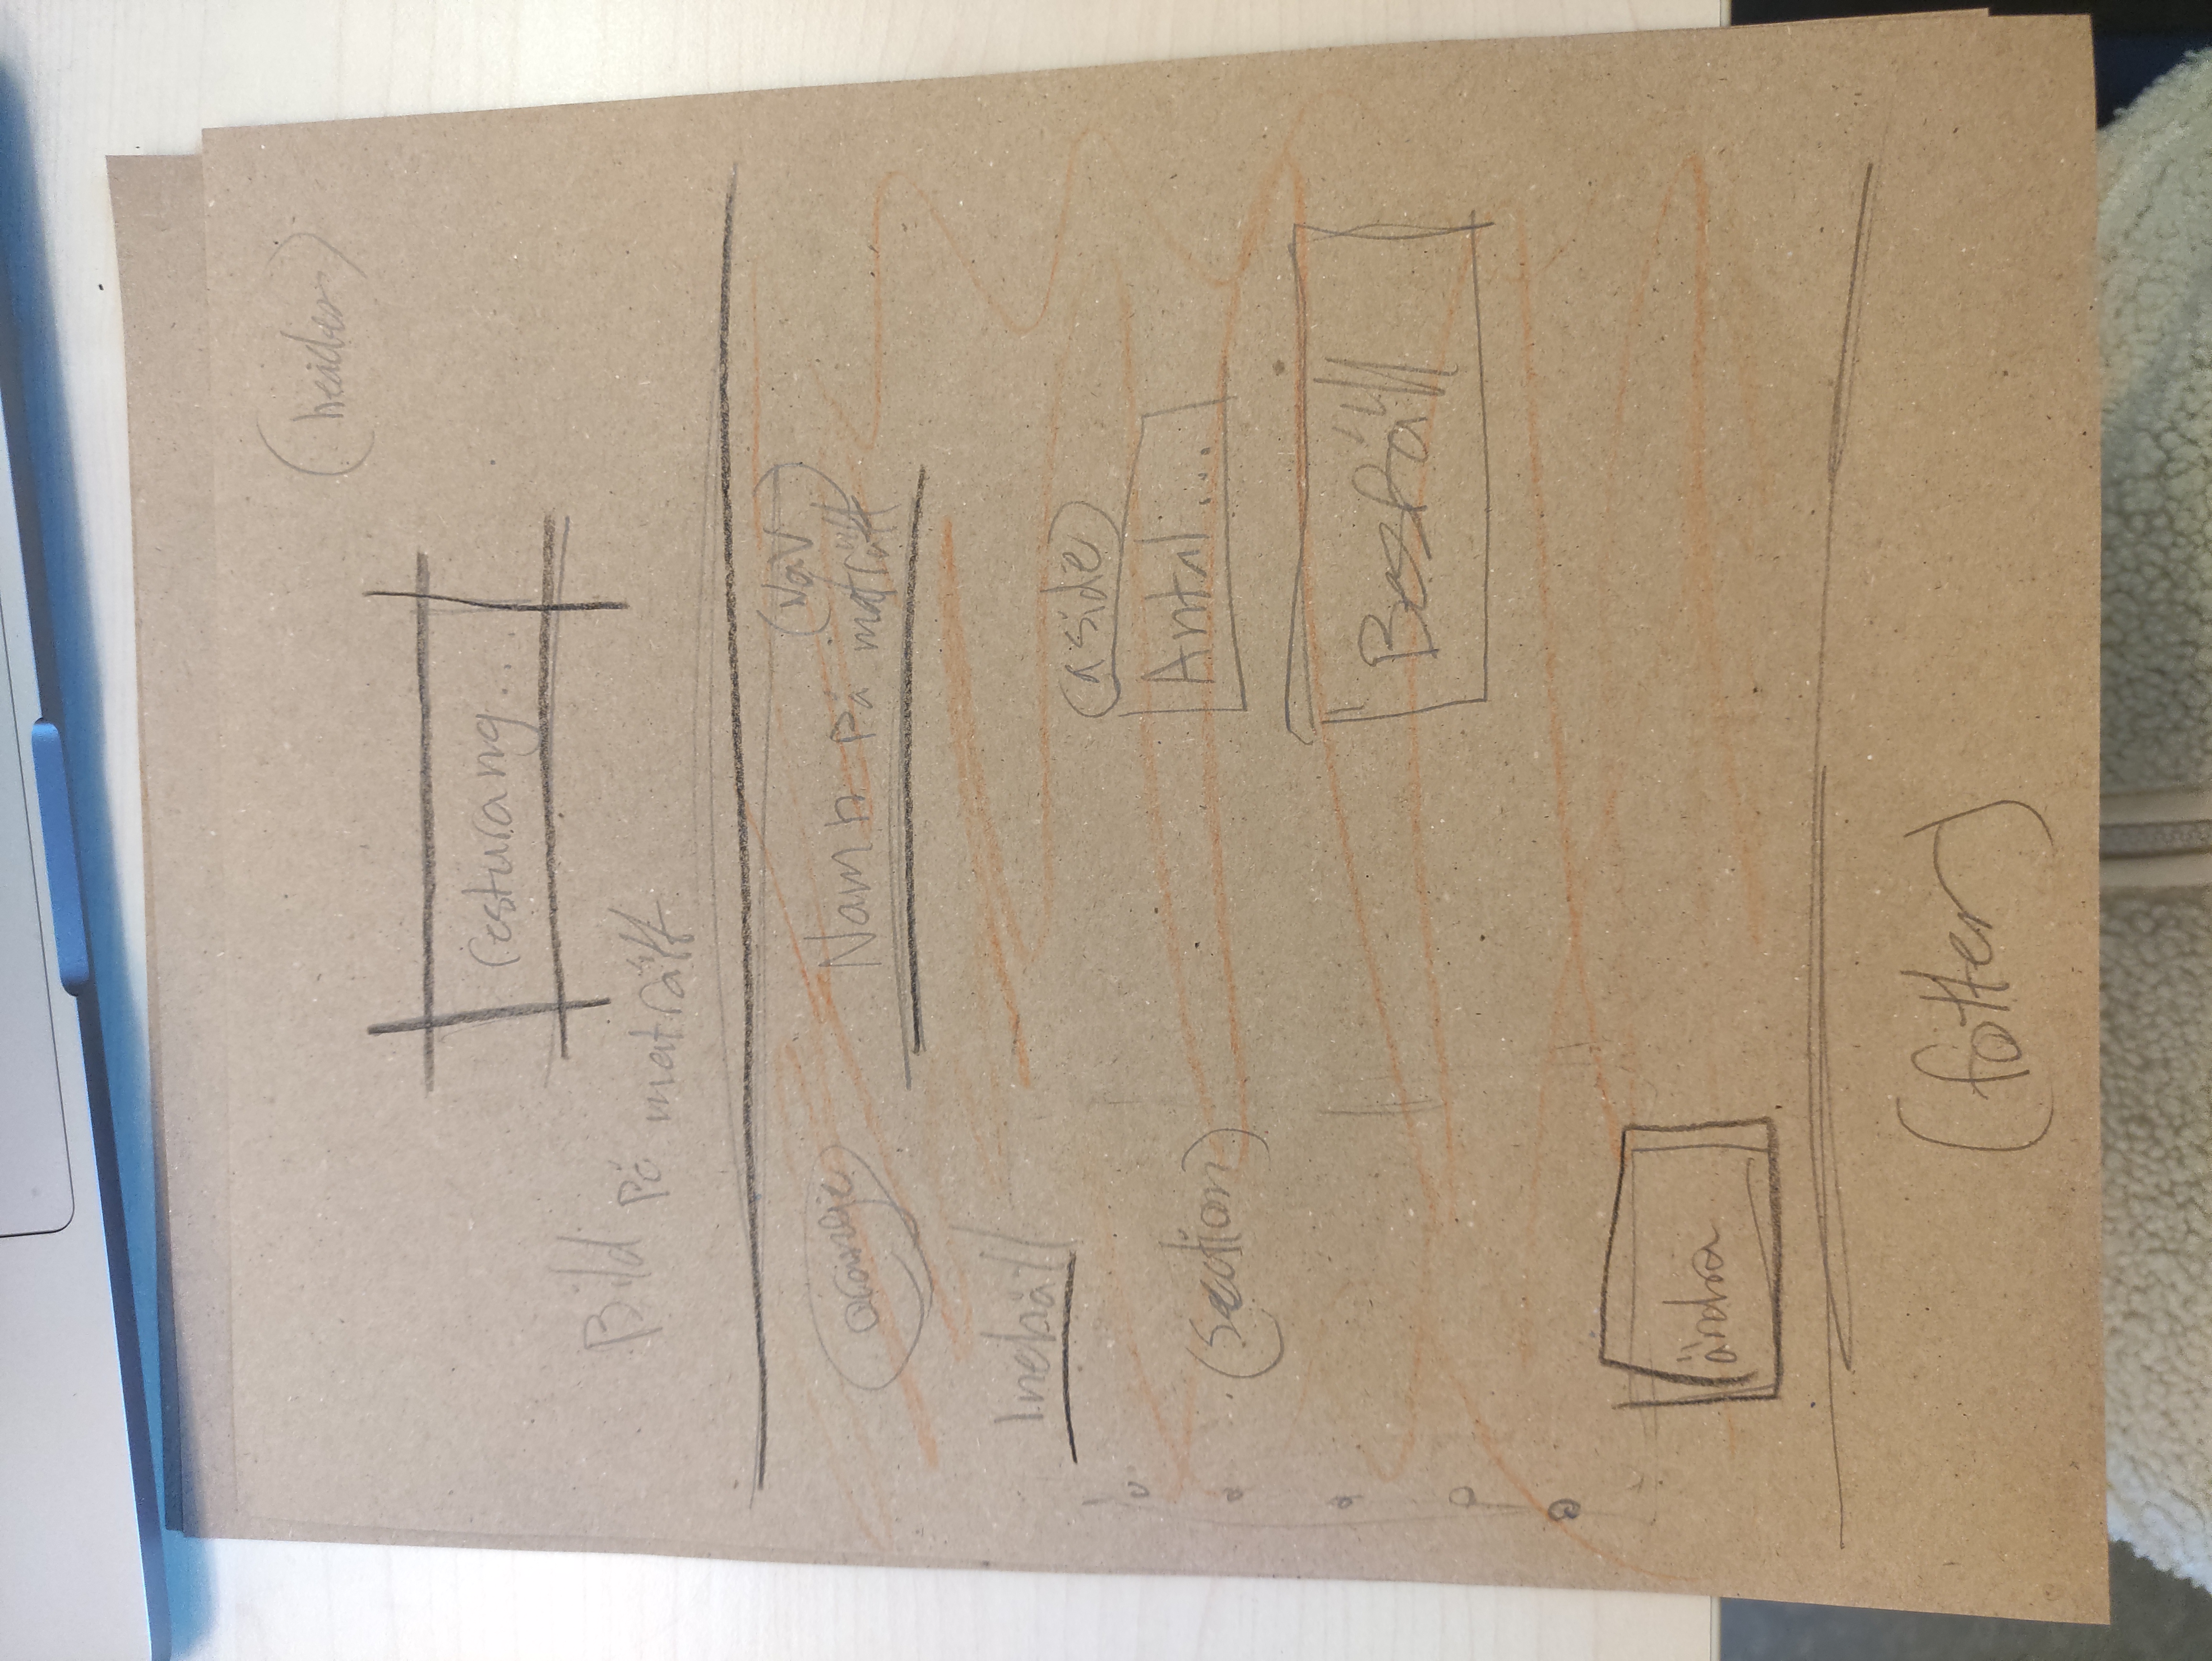 (header)
resturang...
Bild på maträtt
(Nav)
Namn på maträtt
orange
Inehåll
(aside)
(section)
Antal....
Beställ
ändra
(fotter)